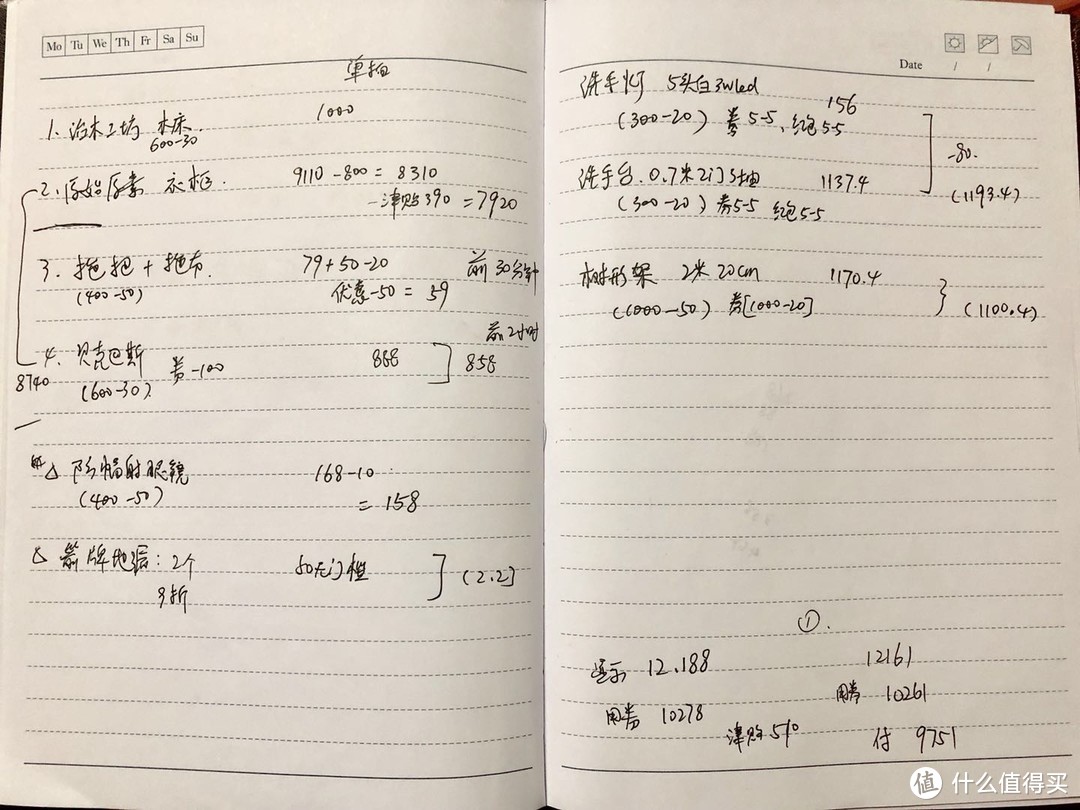 Mo Tu We Th Fr Sa Su
单拍
1. 治木工坊 木床. 1000
600-30
2. 原始原素 衣柜. 9110-800=8310
-津贴390=7920
3. 拖把+拖布 79+50-20 前30分钟
(400-50) 优惠-50=59
前2小时
4. 贝克巴斯 券-100 888 858
8740 (600-30)
△ 防辐射眼镜 168-10
(400-50) =158
△ 箭牌地漏: 2个 50元门槛 (2.2]
9折
Date / /
洗手灯 5头白3wled 156
(300-20) 券5-5、红包5-5
-80.
洗手台.0.7米2门3抽 1137.4 (1193.4)
(300-20) 券5-5 红包5-5
树形架 2米20cm 1170.4
(1000-50) 券[1000-20] (1100.4)
①.
显示 12.188 12161
用券 10261
用券 10278
津贴510 付 9751
值 什么值得买